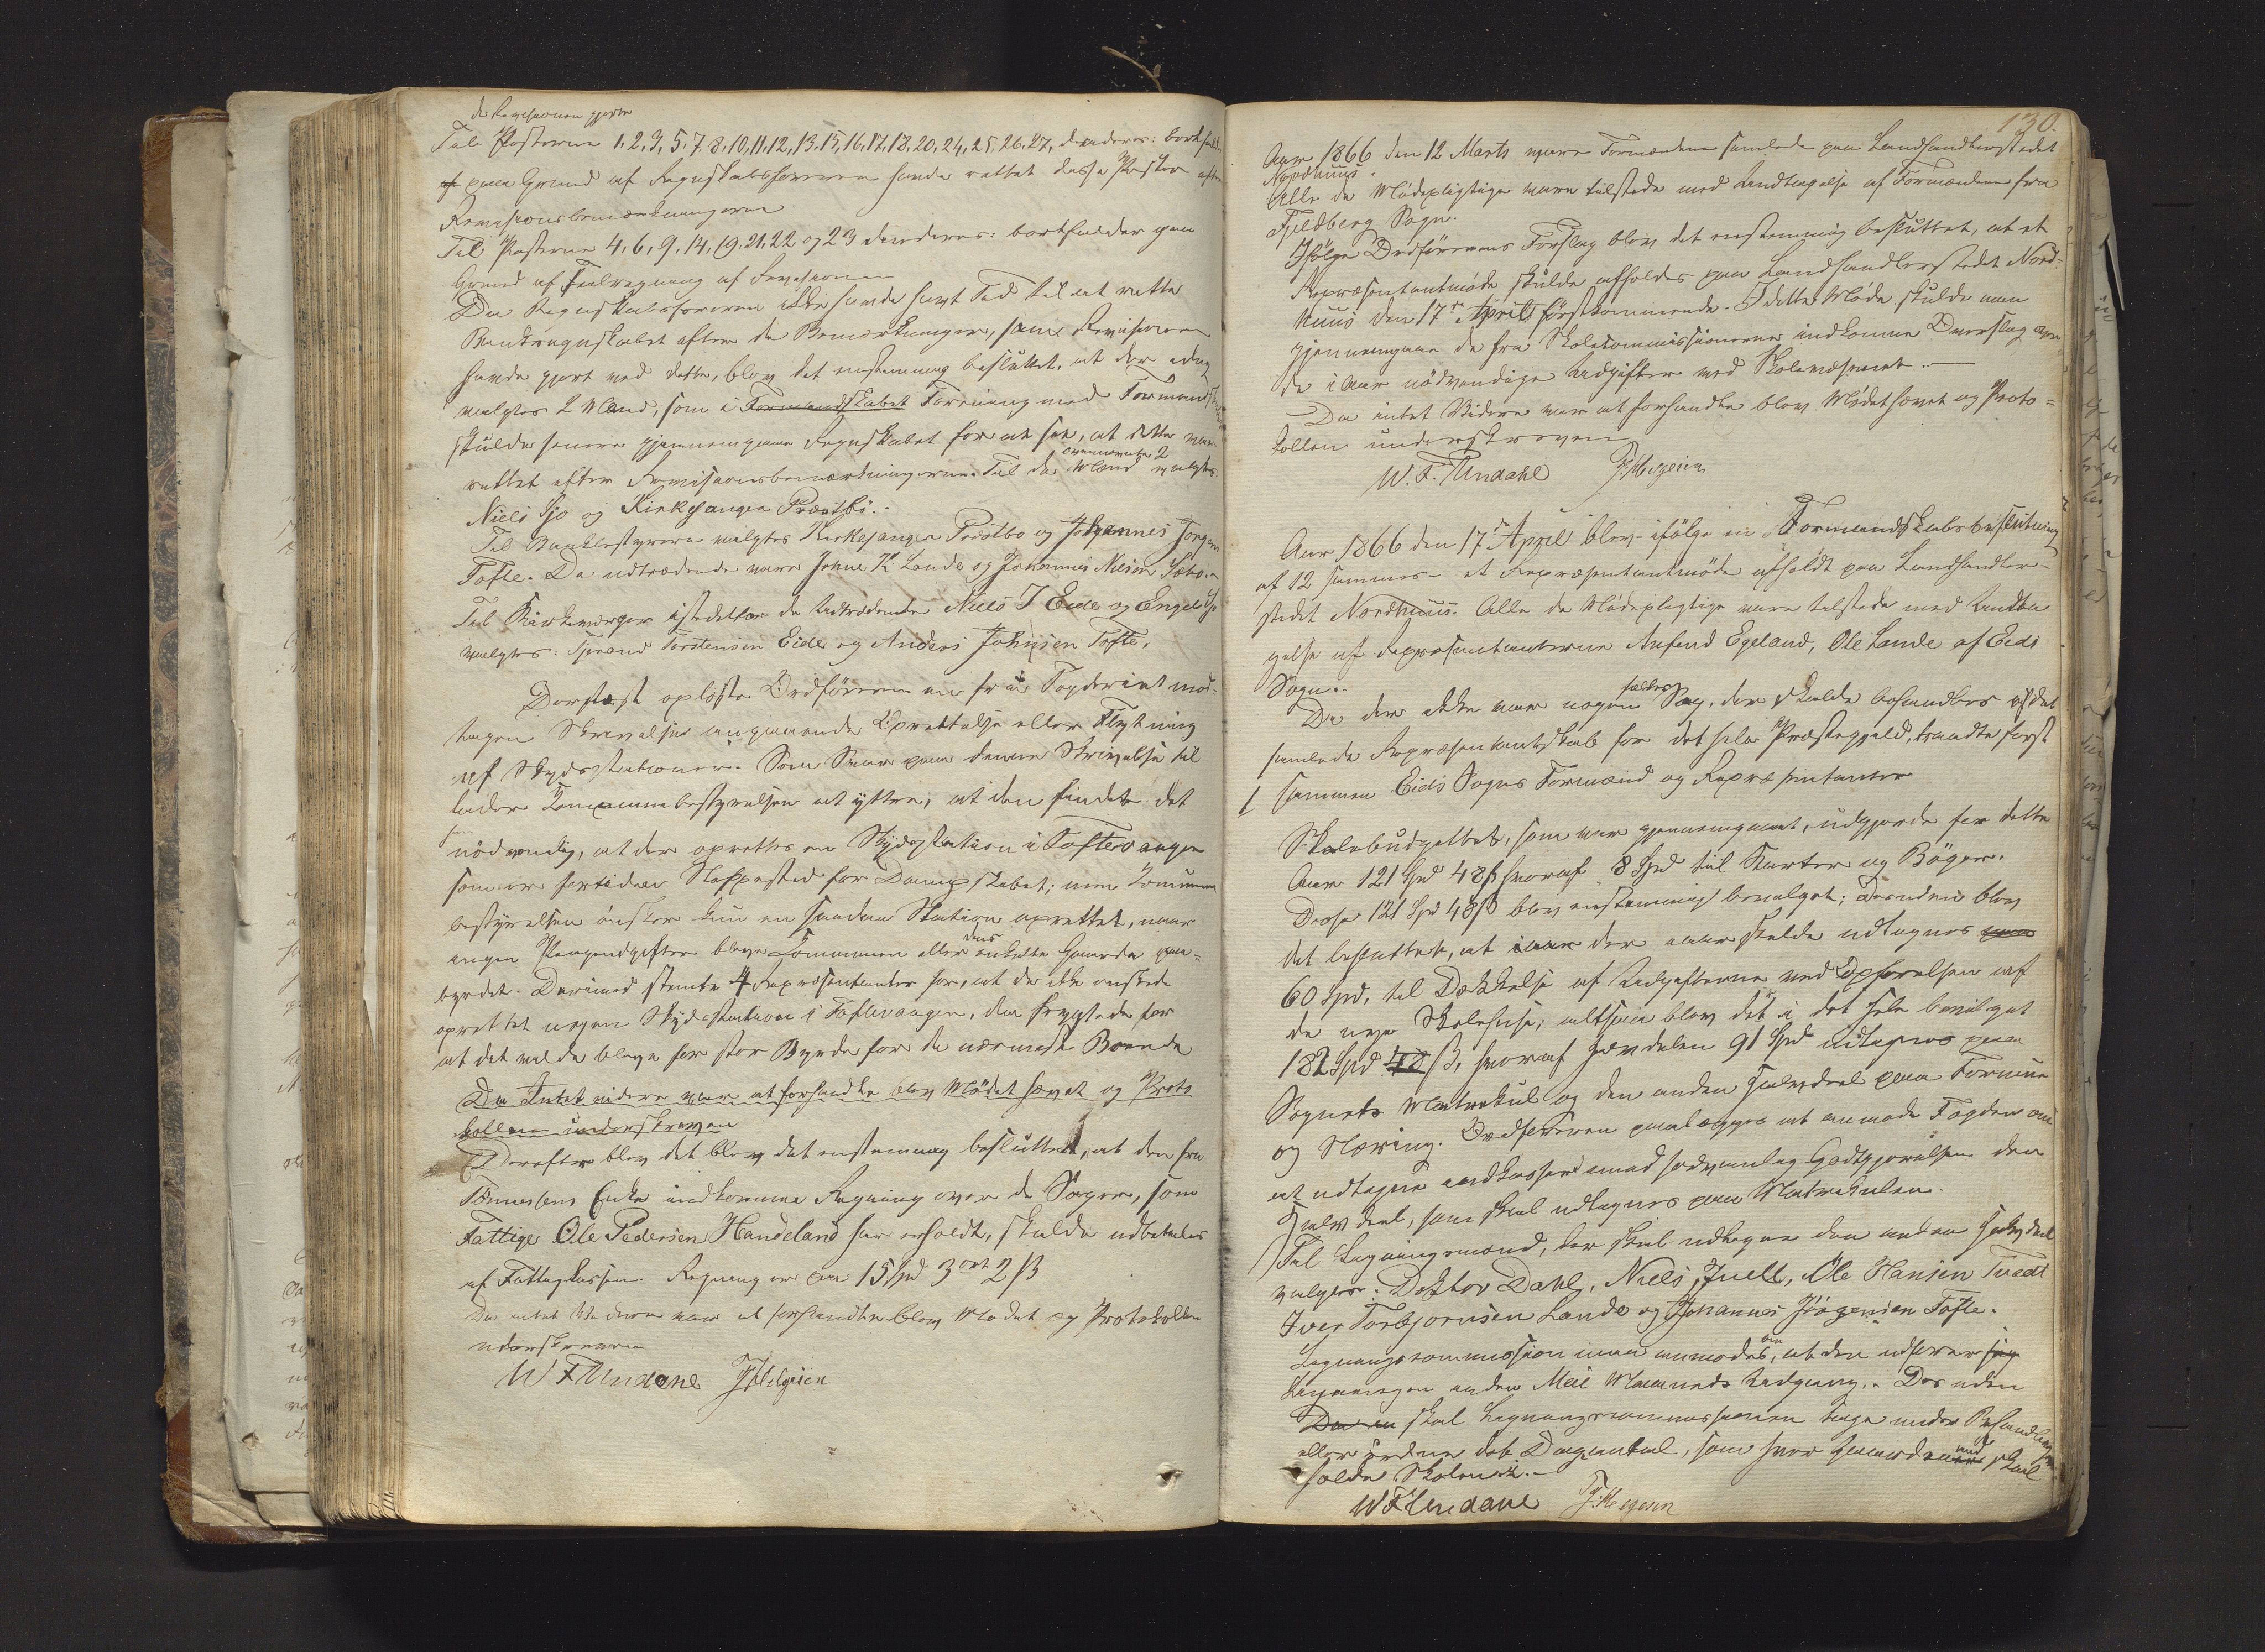 de Revisionen gjorte
Til Posterne 1, 2, 3, 5, 7, 8, 10, 11, 12, 13, 15, 16, 17, 18, 20, 24, 25, 26, 27, decideres: bortfalder
af paa Grund af Regnskabsføreren havde rettet disse Poster efter
Revisionsbemærkningerne
Til Posterne 4, 6, 9, 14, 19, 21, 22 og 23 decideres: bortfalder paa
Grund af Feilregning af Revisionen
Da Regnskabsføreren ikke havde havt Tid til at rette
Bankregnskabet efter de Bemærkninger, som Revisionen
havde gjort ved dette, blev det enstemmig besluttet, at der idag
valgtes 2 Mænd, som i Formandskabet Forening med Formandskabet
skulde senere gjennemgaae Regnskabet for at see, at dette var
rettet efter Revisionsbemærkningerne. Til de ovennævnte 2 Mænd valgtes
Niels Sjo og Kirkesanger Præstbö.
Til Bankbestyrere valgtes Kirkesanger Pröstbo og Johannes Jörgen
Tofte. De udtrædende vare Johne K. Lande og Johannes Nilsen Sæbö.
Til Kirkeværger istedetfor de Udtrædende Niels J Eide og Engel Sjo
valgtes: Sjovard Torstensen Eide og Anders Johnsen Tofte.
Dernæst oplæste Ordföreren en fra Fogderiet mod-
tagen Skrivelse angaaende Oprettelse eller Flytning
af Skydsstationer. Som Svar paa denne Skrivelse til
lader Komunebestyrelsen at yttre, at den finder det
nödvendig, at der oprettes en Skydsstation i Toftevaagen
som er fortiden Stoppested for Dampskibet; men Komune
bestyrelsen önsker kun en saadan Station oprettet, naar
ingen Pengeudgifter bleve Kommunen eller dens enkelte Gaarde paa-
byrdet. Derimod stemte 4 Repræsentanter for, at de ikke önskede
oprettet nogen Skydsstation i Toftevaagen, da frygtede for
at det vilde bleve for stor Byrde for de nærmeste Boende
Da Intet videre var at forhandle blev Mödet hævet og Proto
kollen underskreven
Derefter blev det blev det enstemmig besluttet, at den fra
Tönnesens Enke indkomne Regning over de Sager, som
Fattige Ole Pedersen Handeland har erholdt, skulde udbetales
af Fattigkassen. Regning er paa 15 Spd 3 ort 2 ß
Da intet Videre var at forhandle blev Mödet og Protokollen
underskreven
W F Undahl THelgesen
130.
Aar 1866 den 12 Marts vare Formændene samlede paa Landhandlerstedet
Nordhuus.
Alle de Mödepligtige vare tilstede med Undtagelse af Formændene fra
Fjeldberg Sogn.
Ifölge Ordförerens Forslag blev det enstemmig besluttet, at et
Repræsentantmöde skulde afholdes paa Landhandlerstedet Nord-
huus den 17de April förstkommende. I dette Möde skulde man
gjennemgaae de fra Skolecommissionerne indkomne Overslag over
de i Aar nödvendige Udgifter ved Skolevæsenet.
Da intet Videre var at forhandle blev Mödet hævet og Proto-
kollen underskreven
W. F. Undahl T.Helgesen
Aar 1866 den 17de April blev ifölge en Formandskabsbeslutning
af 12 sammes et Repræsentantmöde afholdt paa Landhandler-
stedet Nordhuus. Alle de Mödepligtige vare tilstede med Undta
gelse af Repræsentanterne Anfind Egeland, Ole Lande af Eids
Sogn.
Da der ikke var nogen fælles Sag, der skulde behandles af det
samlede Repræsentantskab for det hele Præstegjeld, traadte först
1 sammen Eids Sogns Formænd og Repræsentanter
Skolebudgettet, som var gjennemgaaet, udgjorde for dette
Aar 121 Spd 48 ß hvoraf 8 Spd til Karter og Böger.
Disse 121 Spd 48 ß blev enstemmig bevilget; desuden blev
det besluttet, at iaar der aar skulde udlignes paa
60 Spd, til Dækkelse af Udgifterne ved Opförelsen af
de nye Skolehuse; altsaa blev det i det hele bevilget
182 Spd 48 ß, hvoraf Halvdelen 91 Spd udlignes paa
Sognets Matrikul og den anden Halvdeel paa Formue
og Næring. Ordföreren paalægges at anmode Fogden om
at udligne indkassere imod sedvanlig Godtgjörelse den
Halvdeel, som skal udlignes paa Matrikulen.
Til Ligningsmænd, der skal udligne den anden Halvdeel
valgtes: Doktor Dahl, Niels Juell, Ole Hansen Tvedt
Iver Torbjornsen Lande og Johannes Jörgensen Tofte.
Ligningscommission maa anmodes om, at den udförer sig
Ligningen inden Mai Maaneds Udgang. Des uden
Da en skal Ligningscommissionen tage under Behandling
eller ordne det Dageantal, som hver Gaard und skal
holde Skolen i.
W F Undahl T.Helgesen